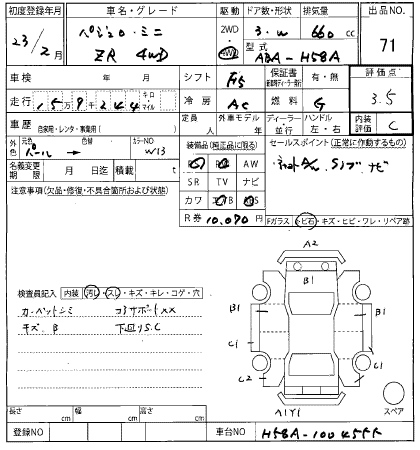 初度登録年月
車名・グレード
駆動
ドア数・形状
排気量
出品NO.
23/2月
パジェロ・ミニ
ZR 4WD
2WD
4WD
3・W
660 cc
型式
ABA-H58A
71
車検 年 月
シフト
F5
保証書
有・無
評価点
走行 15万9千244 キロ マイル
冷房
AC
燃料
G
3.5
車歴
自家用・レンタ・事業用( )
定員 人
外車モデル 年
ディーラー 並行
ハンドル 左・右
内装評価
C
外色
元色
パール
色替
カラーNO
W13
装備品(純正品に限る)
セールスポイント(正常に作動するもの)
AW
SR TV ナビ
カワ
ナビ
名義変更期限 月 日迄
積載 t
注意事項(欠品・修復・不具合箇所および状態)
R券 10,070 円
Fガラス・ヒ石・キズ・ヒビ・ワレ・リペア跡
検査員記入
内装
汚レ・スレ・キズ・キレ・コゲ・穴
カーペットシミ
コアサポートXX
キズ B
下廻りS.C
A2
B1
B1
B1
C1
C1
C2
C1
A1Y1
スペア
長さ cm
幅 cm
高さ cm
登録NO
車台NO
H58A-10045††